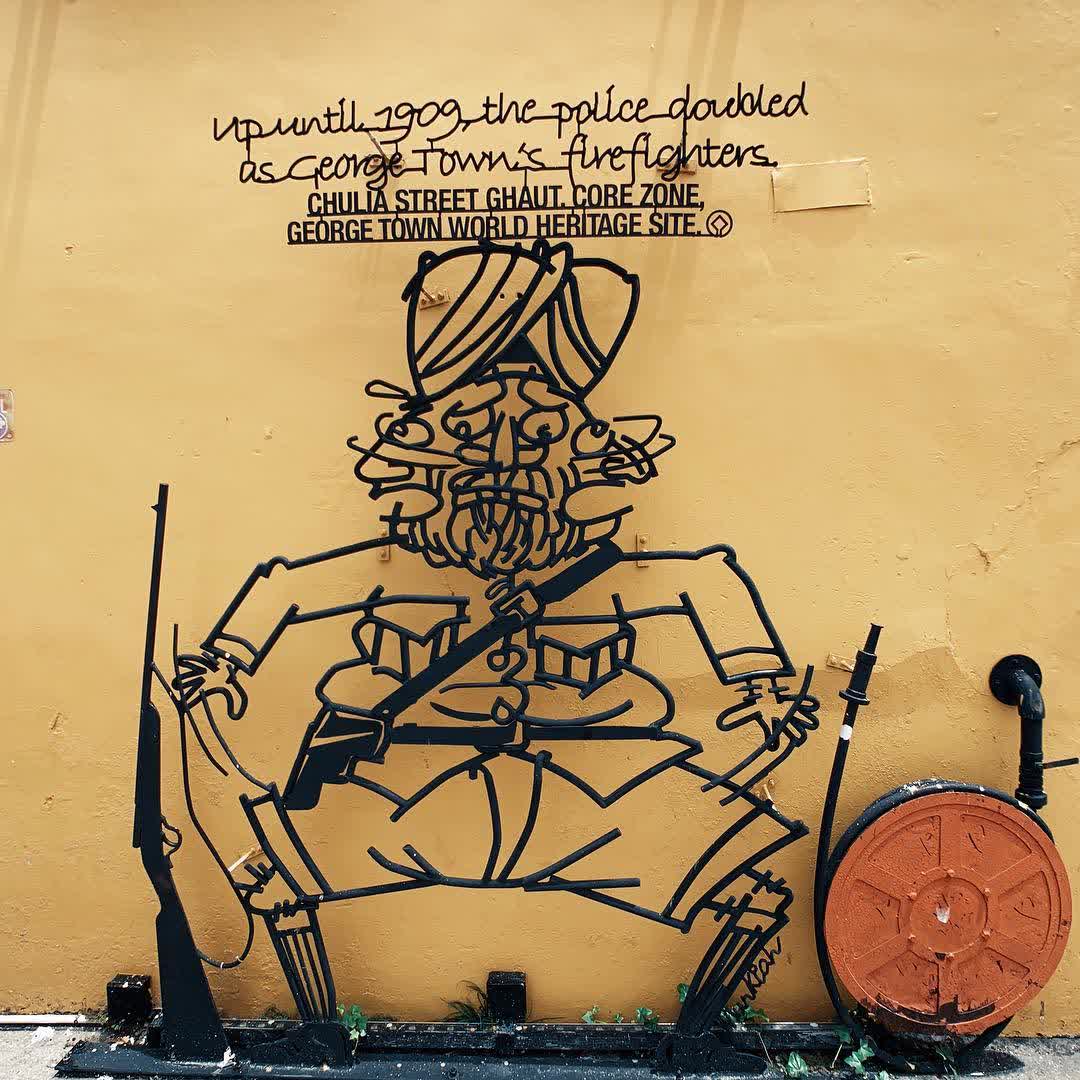 up until 1909, the police doubled
as George Town's firefighters.
CHULIA STREET GHAUT. CORE ZONE,
GEORGE TOWN WORLD HERITAGE SITE.